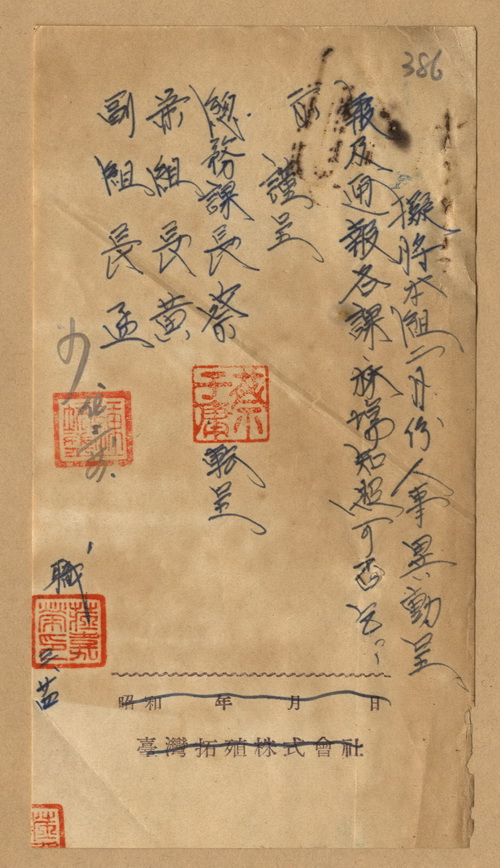 386
擬將本組二月份人事異動呈
報及通報各課、林場知照可否乞
示 謹呈
總務課長蔡 轉呈
兼組長黃
副組長孟
職
昭和 年 月 日
臺灣拓殖株式會社